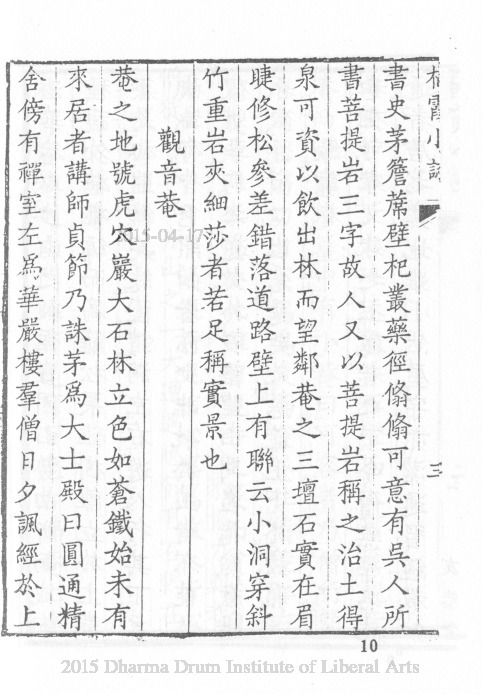 棲霞小誌
三
書史茅簷蓆壁杞叢藥徑翛翛可意有吳人所
書菩提岩三字故人又以菩提岩稱之治土得
泉可資以飲出林而望鄰菴之三壇石實在眉
睫修松參差錯落道路壁上有聯云小洞穿斜
竹重岩夾細莎者若足稱實景也
觀音菴
菴之地號虎穴巖大石林立色如蒼鐵始未有
來居者講師貞節乃誅茅爲大士殿曰圓通精
舍傍有禪室左爲華嚴樓羣僧日夕諷經於上
2015-04-17
10
2015 Dharma Drum Institute of Liberal Arts